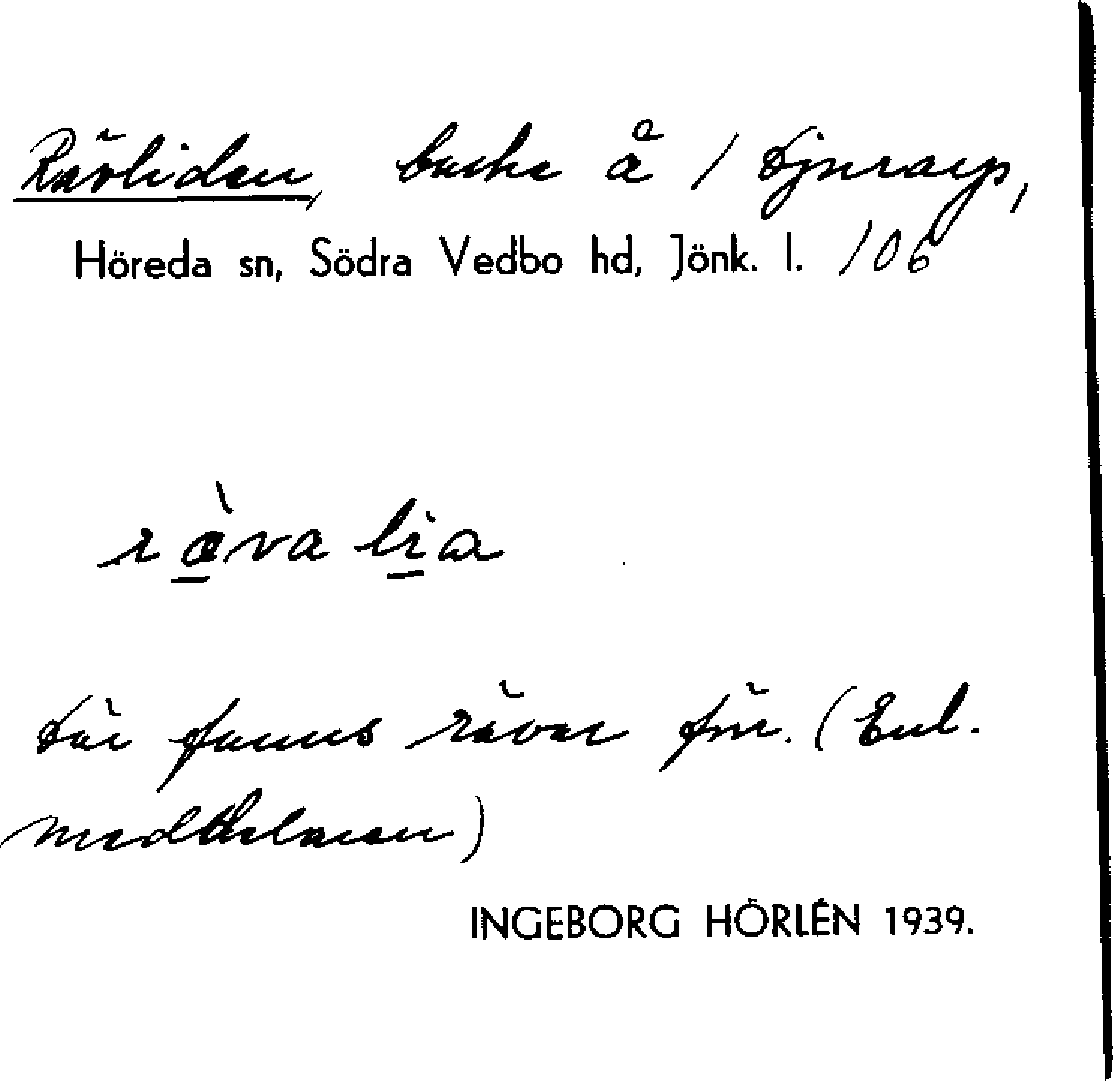 Rävliden, backe å 1 Djurarp,
Höreda sn, Södra Vedbo hd, Jönk. l. 106
ràva lia
Där funns rävar för. (Enl.
meddelaren)
INGEBORG HÖRLÉN 1939.